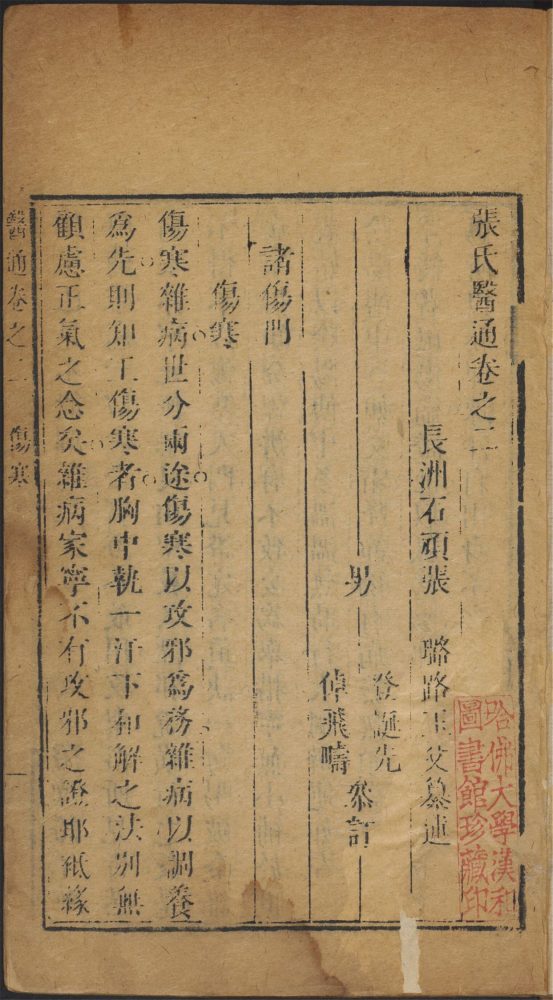 張氏醫通卷之二
長洲石頑張 璐路玉父纂述
男
登誕先
倬飛疇
參訂
諸傷門
傷寒
傷寒雜病世分兩途傷寒以攻邪為務雜病以調養
為先則知工傷寒者胸中執一汗下和解之法別無
顧慮正氣之念矣雜病家寧不有攻邪之證耶秪緣
醫通卷之二 傷寒 一
哈佛大學漢和
圖書館珍藏印